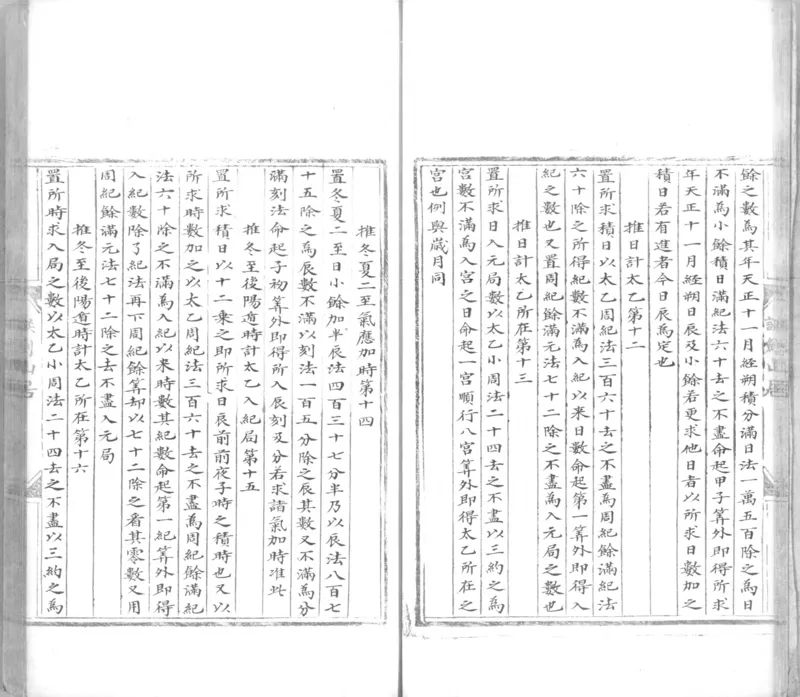 餘之數爲其年天正十一月經朔積分滿日法一萬五百除之爲日
不滿爲小餘積日滿紀法六十去之不盡命起甲子筭外即得所求
年天正十一月經朔日辰及小餘若更求他日者以所求日數加之
積日若有進者今日辰爲定也
推日計太乙第十二
置所求積日以太乙周紀法三百六十去之不盡爲周紀餘滿紀法
六十除之所得紀數不滿爲入紀以來日數命起第一筭外即得入
紀之數也又置周紀餘滿元法七十二除之不盡爲入元局之數也
推日計太乙所在第十三
置所求日入元局數以太乙小周法二十四去之不盡以三約之爲
宮數不滿爲入宮之日命起一宮順行八宮筭外即得太乙所在之
宮也例與歲月同
推冬夏二至氣應加時第十四
置冬夏二至日小餘加半辰法四百三十七分半乃以辰法八百七
十五除之爲辰數不滿以刻法一百五分除之辰其數又不滿爲分
滿刻法命起子初筭外即得所入辰刻及分若求諸氣加時准此
推冬至後陽遁時計太乙入紀局第十五
置所求積日以十二乘之即所求日辰前前夜子時之積時也又以
所求時數加之以太乙周紀法三百六十去之不盡爲周紀餘滿紀
法六十除之不滿爲入紀以來時數其紀數命起第一紀筭外即得
入紀數除了紀法再下周紀餘筭却以七十二除之看其零數又用
周紀餘滿元法七十二除之去不盡入元局
推冬至後陽遁時計太乙所在第十六
置所時求入局之數以太乙小周法二十四去之不盡以三約之爲